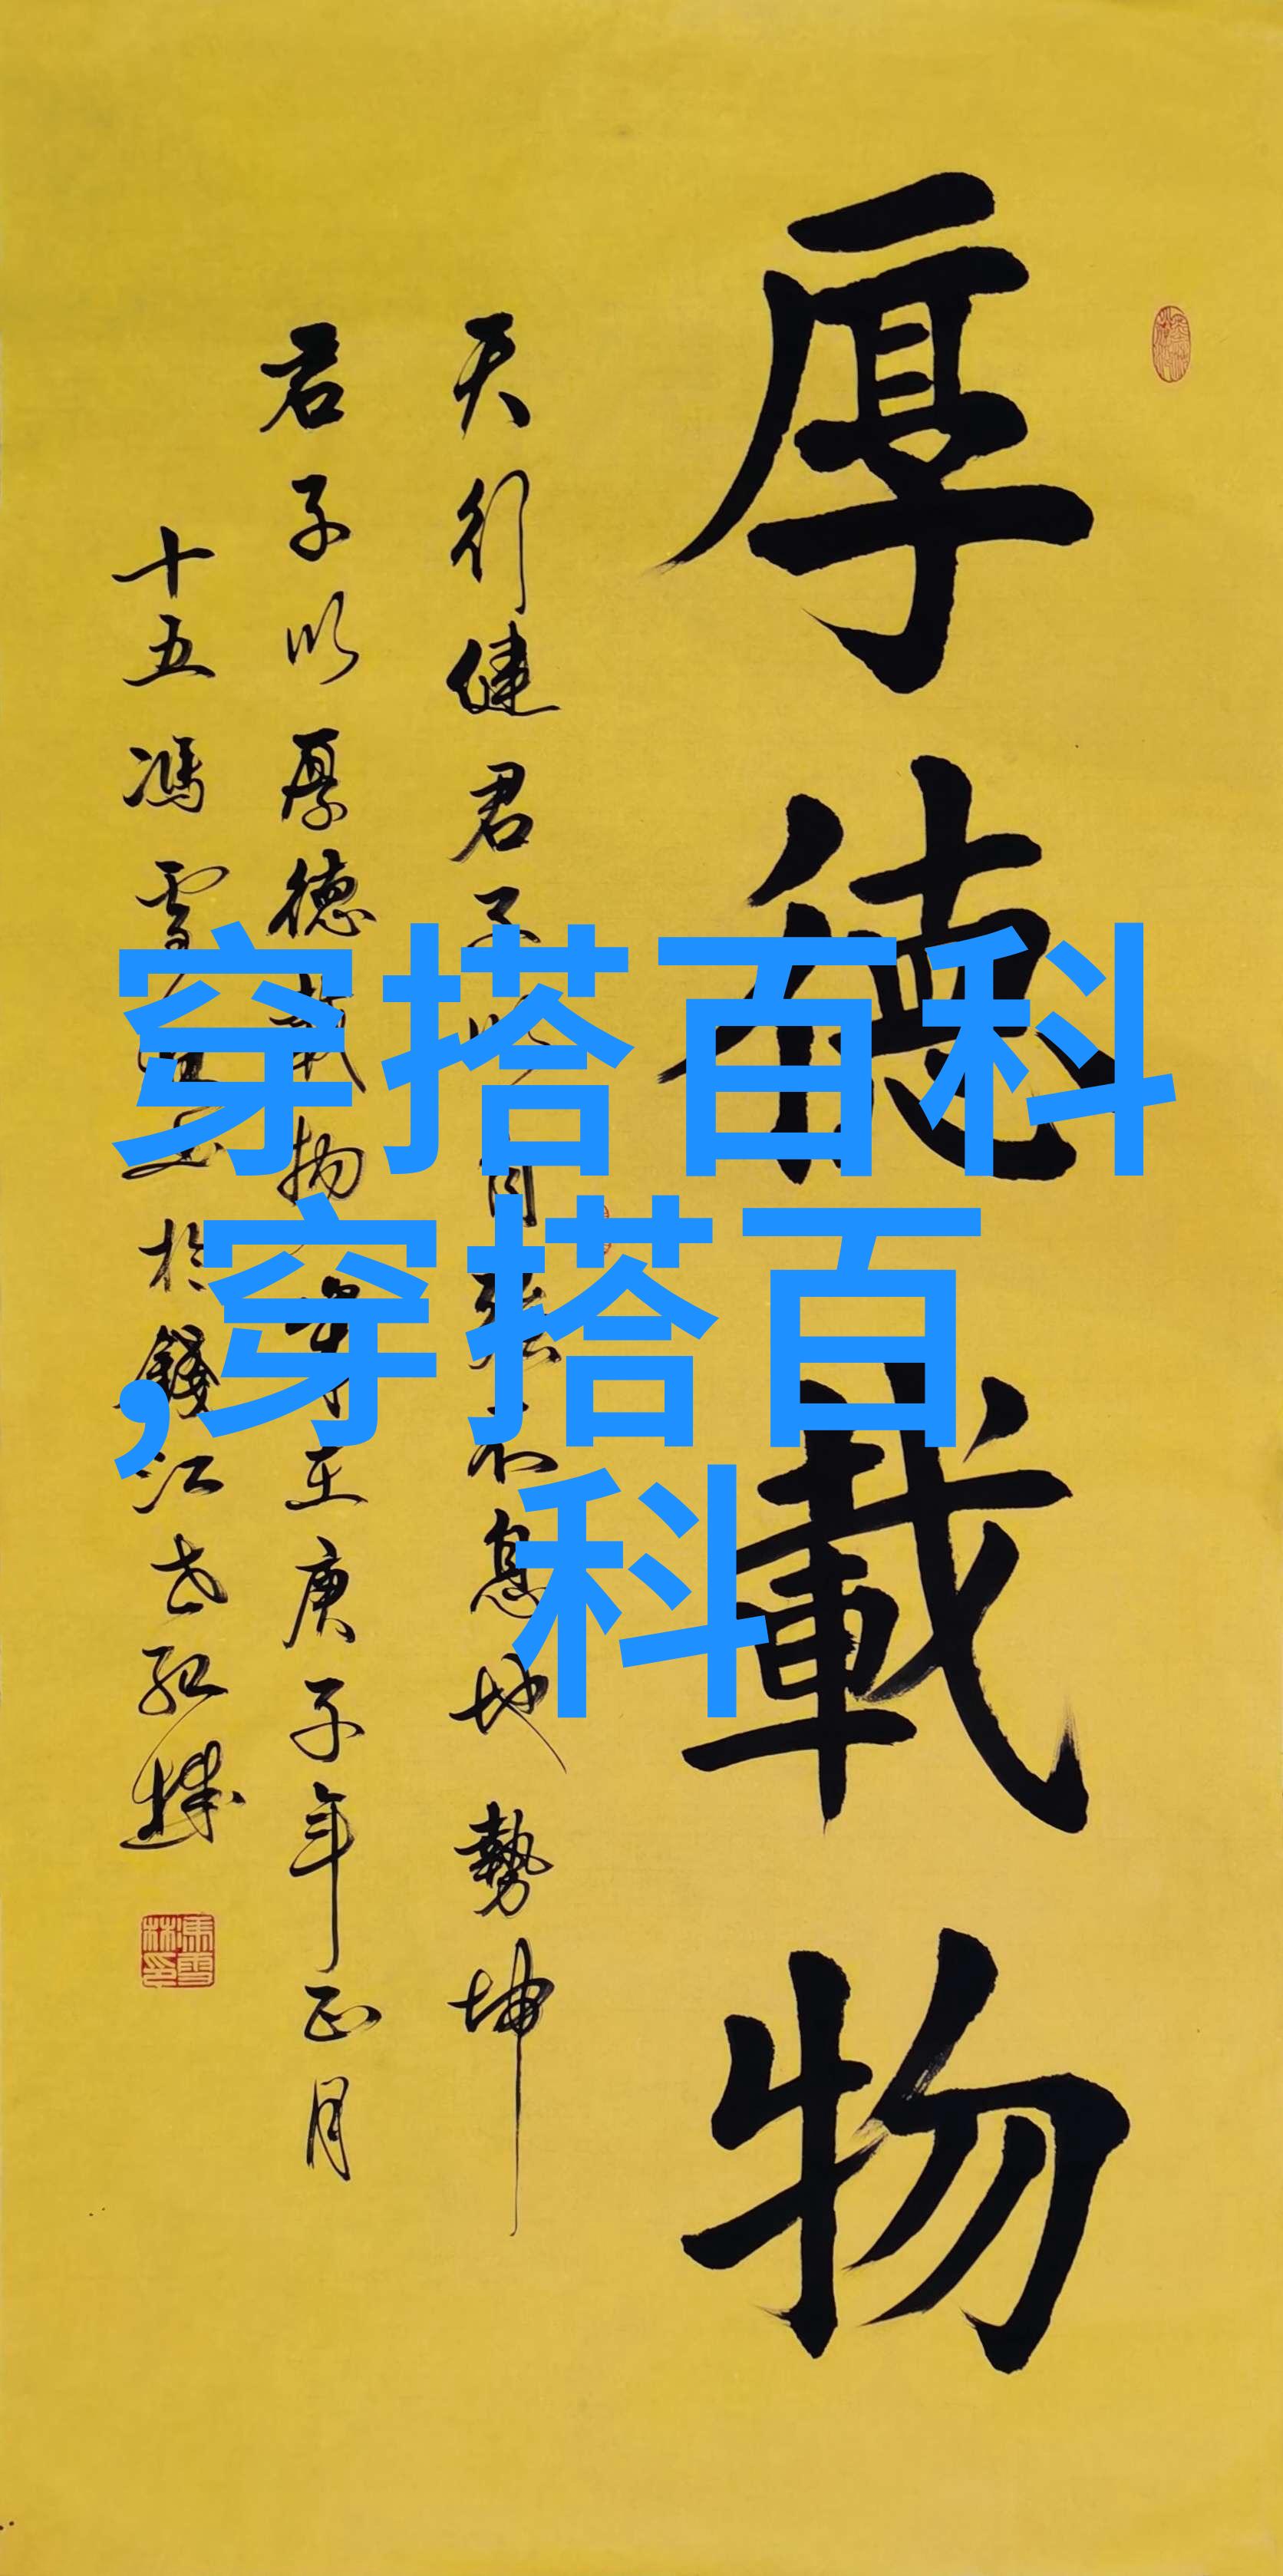 厚德載物
天行健君子以自强不息地勢坤
君子以厚德載物 庚子年正月
十五馮雪 於錢江
馮雪林印
穿搭百科
,穿搭百
科